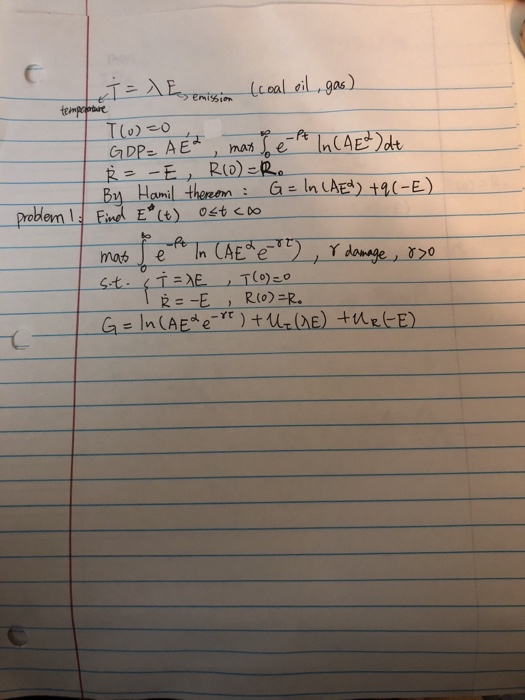 Ṫ = λE → emission (coal oil, gas)
temperature
T(0) = 0 ,
GDP = AE^α , max ∫_0^∞ e^{-ρt} ln(AE^α) dt
Ṙ = -E , R(0) = R₀
By Hamil thereom : G = ln(AE^α) + q(-E)
problem 1: Find E*(t) 0≤t<∞
max ∫_0^∞ e^{-ρt} ln(AE^α e^{-γτ}) , γ damage, γ>0
s.t. { Ṫ = λE , T(0)=0
Ṙ = -E , R(0)=R₀
G = ln(AE^α e^{-γτ}) + u_τ(λE) + u_R(-E)